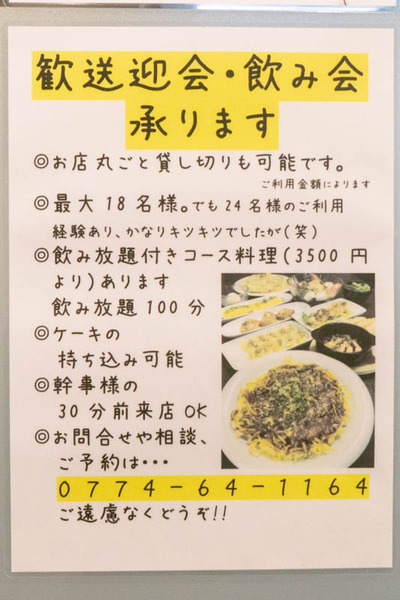 歓送迎会・飲み会
承ります
◎お店丸ごと貸し切りも可能です。
ご利用金額によります
◎最大18名様。でも24名様のご利用
経験あり、かなりキツキツでしたが(笑)
◎飲み放題付きコース料理(3500円
より)あります
飲み放題100分
◎ケーキの
持ち込み可能
◎幹事様の
30分前来店OK
◎お問合せや相談、
ご予約は・・・
0774-64-1164
ご遠慮なくどうぞ!!